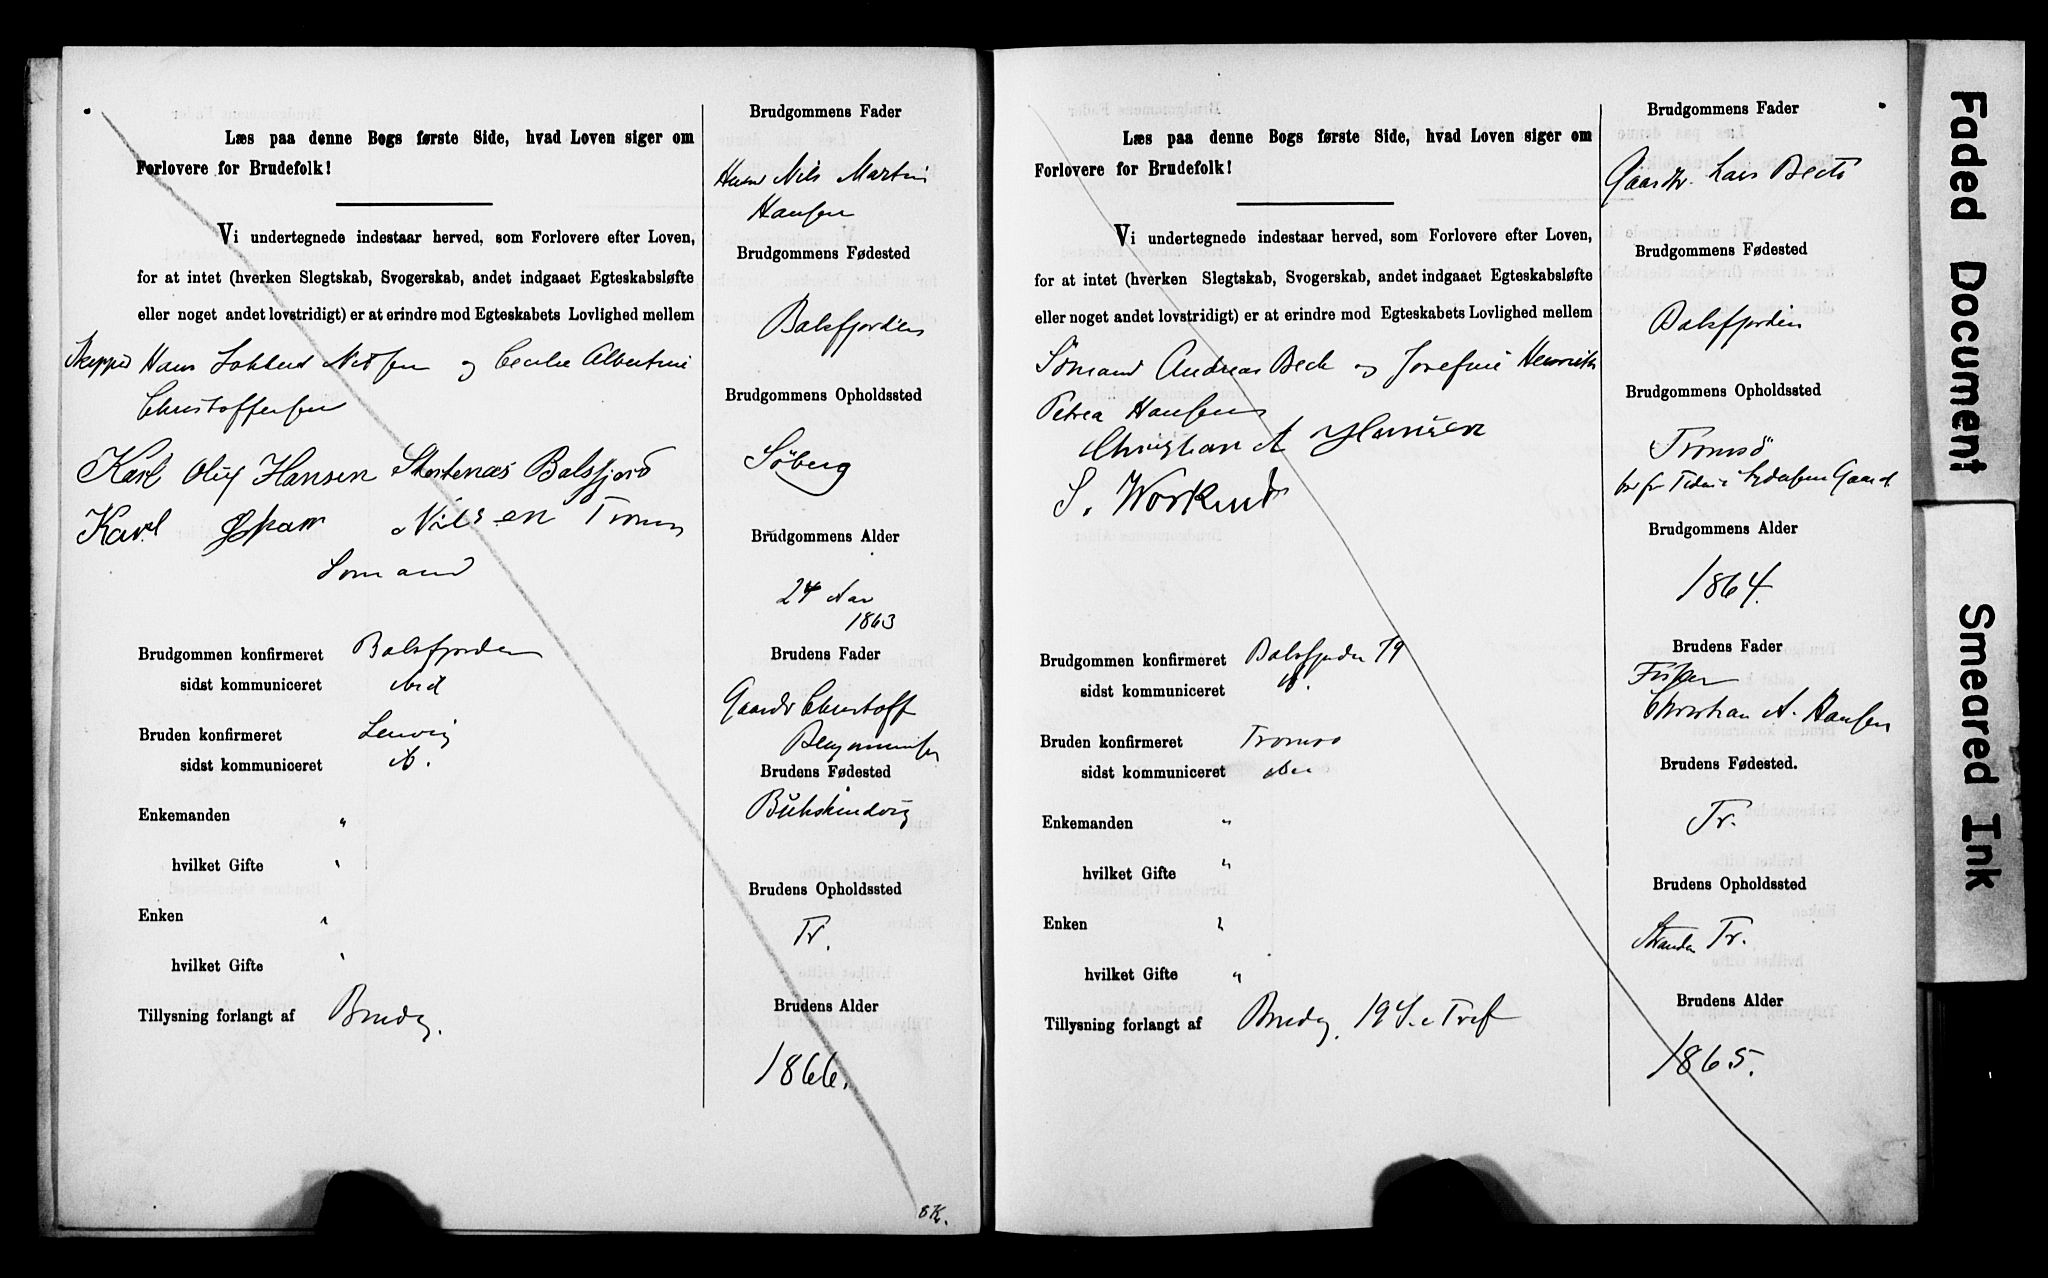 Læs paa denne Bogs første Side, hvad Loven siger om
Forlovere for Brudefolk!
Vi undertegnede indestaar herved, som Forlovere efter Loven,
for at intet (hverken Slegtskab, Svogerskab, andet indgaaet Egteskabsløfte
eller noget andet lovstridigt) er at erindre mod Egteskabets Lovlighed mellem
Hans Nilsen og Cecilie Albertine
Christoffersen
Karl Oluf Hansen Stortenæs Balsfjord
Karl Nilsen Tromsø
Sømand
Brudgommen konfirmeret Balsfjorden
sidst kommuniceret
Bruden konfirmeret Lenvig
sidst kommuniceret
Enkemanden "
hvilket Gifte "
Enken "
hvilket Gifte "
Tillysning forlangt af Brudg.
Brudgommens Fader
Nils Martin
Hansen
Brudgommens Fødested
Balsfjorden
Brudgommens Opholdssted
Søberg
Brudgommens Alder
24 Aar
1863
Brudens Fader
Gaardbr Christoff
Benjaminsen
Brudens Fødested
Bukskindvig
Brudens Opholdssted
Tr.
Brudens Alder
1866.
8 Kr.
Læs paa denne Bogs første Side, hvad Loven siger om
Forlovere for Brudefolk!
Vi undertegnede indestaar herved, som Forlovere efter Loven,
for at intet (hverken Slegtskab, Svogerskab, andet indgaaet Egteskabsløfte
eller noget andet lovstridigt) er at erindre mod Egteskabets Lovlighed mellem
Sømand Andreas Beck og Josefine Henrikke
Petrea Hansen
Christian A Hansen
S. Workind
Brudgommen konfirmeret Balsfjorden 79
sidst kommuniceret
Bruden konfirmeret Tromsø
sidst kommuniceret
Enkemanden "
hvilket Gifte "
Enken "
hvilket Gifte "
Tillysning forlangt af Brudg. 19 S. e Tref
Brudgommens Fader
Gaardbr. Lars Beck
Brudgommens Fødested
Balsfjorden
Brudgommens Opholdssted
Tromsø
Gaard
Brudgommens Alder
1864.
Brudens Fader
Fisker
Christian A. Hansen
Brudens Fødested.
Tr.
Brudens Opholdssted
Stranden Tr.
Brudens Alder
1865.
Faded Document
Smeared Ink